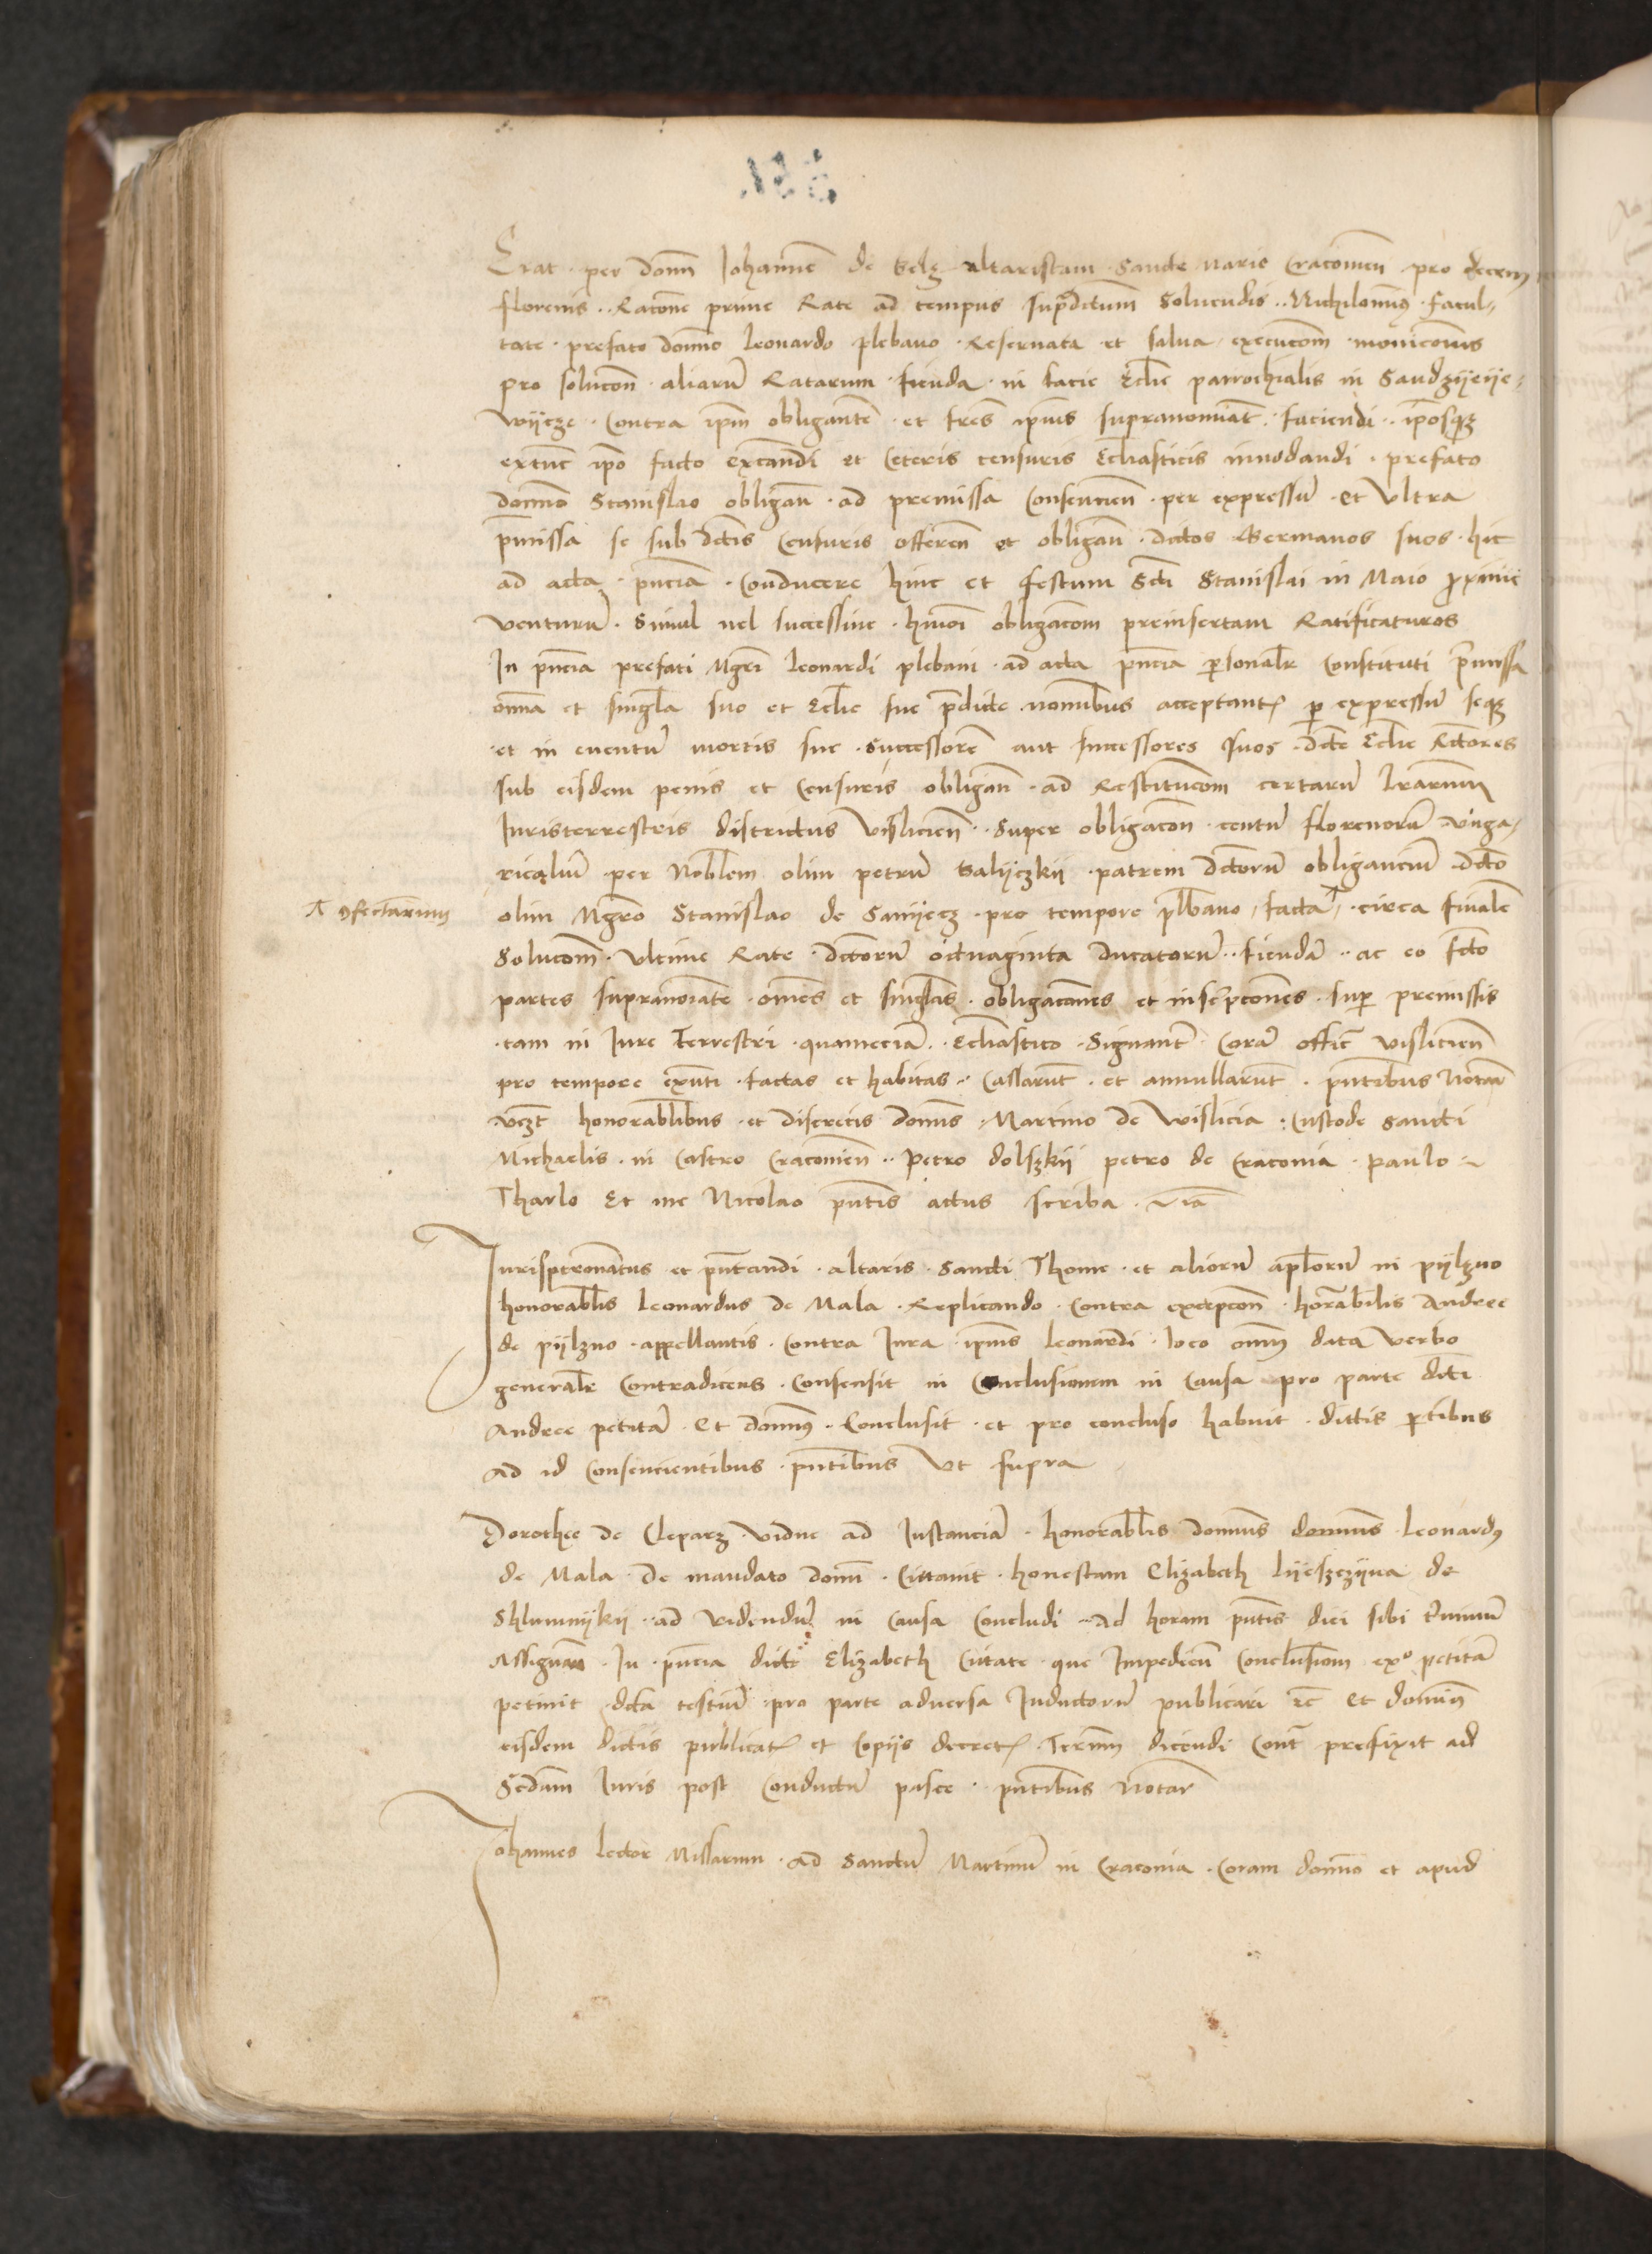 Erat per domn Johannē de belz altaristam Sancte Marie Cracouien pro decem
florenis .. Racone prime Rate ad tempus supradictum Soluendis .. Nichilomin9 facul-
tate prefato domno Leonardo plebano Reseruata et salua execucom monicionis
pro solucon aliarū Ratarum fienda in facie Eclie parrochialis in Sandzijeije-
wijcze Contra ipm obligantē et fres ipius supranominat faciendi .. ipsosq3
extunc ipo facto excandi et Ceteris censuris Ecliasticis innodandi . prefato
domno Stanislao obligan ad premissa Consencien per expressū et Vltra
pmissa se sub dctis Censuris offeren et obligan dictos Germanos suos hic
ad acta pnciā Conducere hinc et festum Scti Stanislai in Maio proxime
venturū . Simul uel successiue hmoi obligacom preinsertam Ratificaturos
In pncia prefati Mgri Leonardi plebani ad acta pncia psonalr Constituti pmissa
omia et singla suo et Eclie sue pdicte nominibus acceptant p expressū seq3
et in euentū mortis sue Successorē aut successores suos dcte Eclie Rctores
sub eisdem penis et Censuris obligan ad Restitucom certarū lrarum
Juristerrestris districtus Vislicien Super obligacon centū florenorū vnga-
ricaliū per Noblem olim petrū Galijczkij patrem dctorū obliganciū dcto
⁁ 9fectarum
olim Mgro Stanislao de Sanijecz pro tempore plbano facta ⁁ circa finalē
Solucom Vltime Rate dctorū octuaginta ducatorū fiendā .. ac eo fcto
partes supranoiate omēs et singlas obligacōnes et inscripcōnes sup premissis
tam in Jure Terrestri quameciā Ecliastico Signant Corā offic vislicien
pro tempore exnti factas et habitas Cassarunt et annullarunt pntibus Notar
vczt honorablibus et discretis domis Martino de Wislicia Custode sancti
Michaelis in Castro Cracouien .. Petro dolszkij petro de Cracouia paulo
Tharlo Et me Nicolao pntis actus scriba
Jurispatronatus et pntandi altaris Sancti Thome et aliorū aplorū in pijlzno
honorablis Leonardus de Mala Replicando Contra excepcon horabilis Andree
de pijlzno appellantis Contra Jura ipius Leonardi loco omn data verbo
generalr Contradicens Consensit in Conclusionem in Causa pro parte dicti
Andree petitā Et domn9 Conclusit et pro concluso habuit dictis ptibus
Ad id Consencientibus pntibus Vt supra
Dorothee de Cleparz vidue ad Instanciā honorablis domnus domnus Leonard9
de Mala De mandato domi Cittauit honestam Elizabeth Lijeszczijna de
Shlumnijkij ad videndū in Causa Concludi Ad horam pntis diei sibi tminū
Assignan In pncia dicte Elizabeth Citate que Impediens Conclusiom exo petitā
petiuit dcta testiū pro parte aduersa Inductorū publicari etc Et domin9
eisdem dictis publicat et Copijs decret Termn dicendi Cont prefixit ad
Scdam Iuris post Conductū pasce pntibus Notar
Johannes Lector Missarum Ad Sanctū Martinū in Cracouia Coram domno et apud